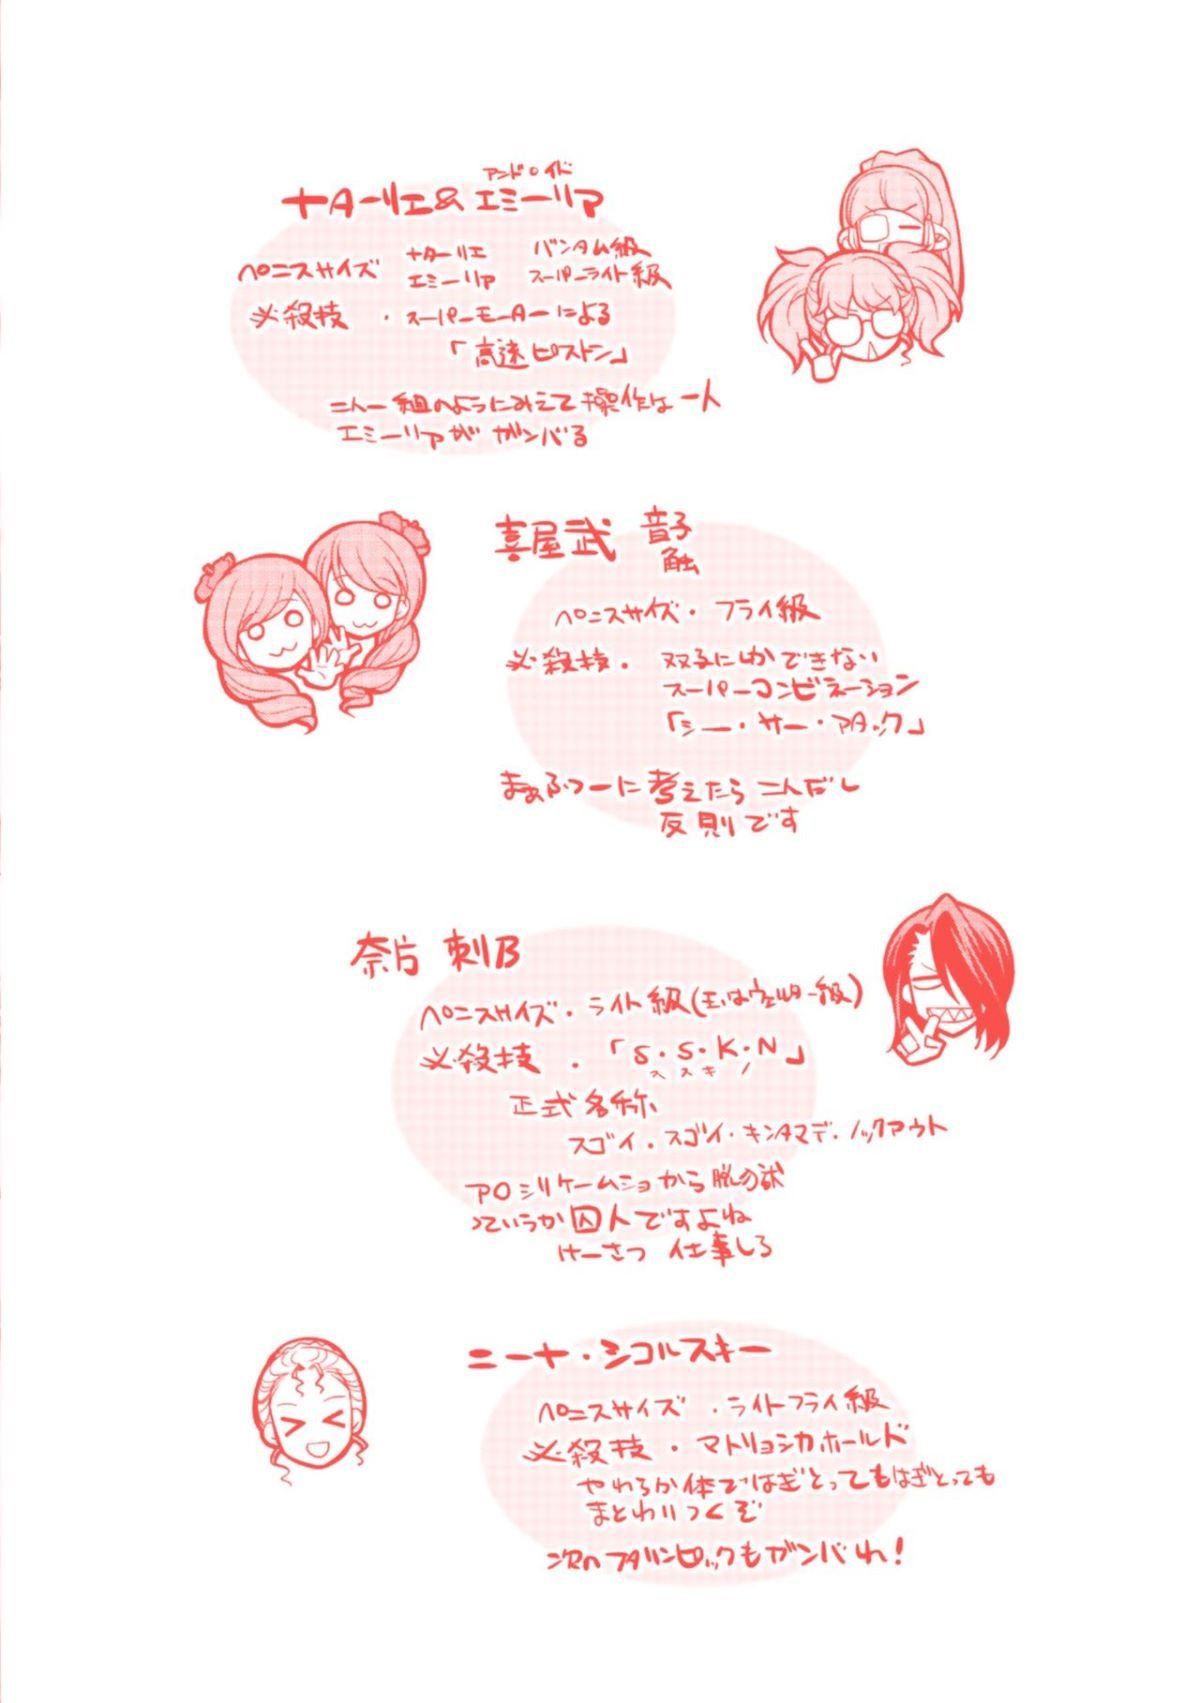 アンドロイド
ナターリエ&エミーリア
ペニスサイズ ナターリエ バンタム級
エミーリア スーパーライト級
必殺技・スーパーモーターによる
「高速ピストン」
二人一組のようにみえて操作は一人
エミーリアがガンバる
喜屋武 音子
触
ペニスサイズ・フライ級
必殺技・双子にしかできない
スーパーコンビネーション
「シー・サー・アタック」
まぁふつーに考えたら二人だし
反則です
奈片 刺B
ペニスサイズ・ライト級(玉はウェルター級)
必殺技・「S・S・K・N」
ススキノ
正式名称
スゴイ・スゴイ・キンタマデ・ノックアウト
アOシリケームショから脱獄
っていうか囚人ですよね
けーさつ 仕事しろ
ニーナ・シコルスキー
ペニスサイズ・ライトフライ級
必殺技・マトリョシカホールド
やわらか体ではぎとってもはぎとっても
まとわりつくぞ
次のフタリンピックもガンバれ!